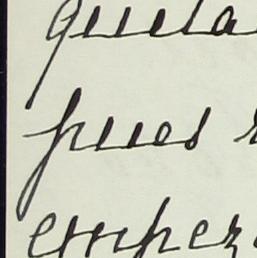 quela
pues
empez